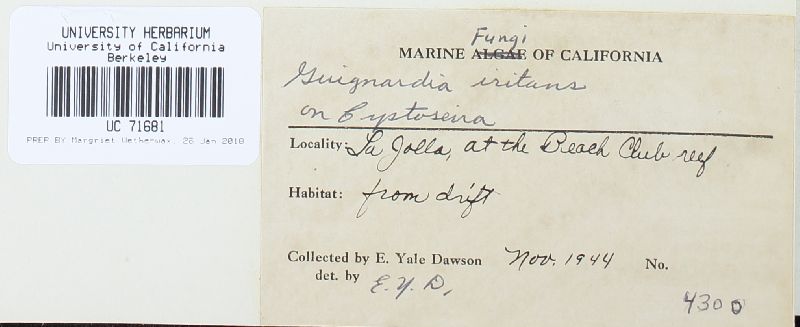 UNIVERSITY HERBARIUM
University of California
Berkeley
UC 71681
PREP BY Margriet Wetherwax, 26 Jan 2018
Fungi
MARINE ALGAE OF CALIFORNIA
Guignardia iritans
on Cystoseira
Locality: La Jolla, at the Beach Club reef
Habitat: from drift
Collected by E. Yale Dawson Nov. 1944 No.
det. by E.Y.D.
4300